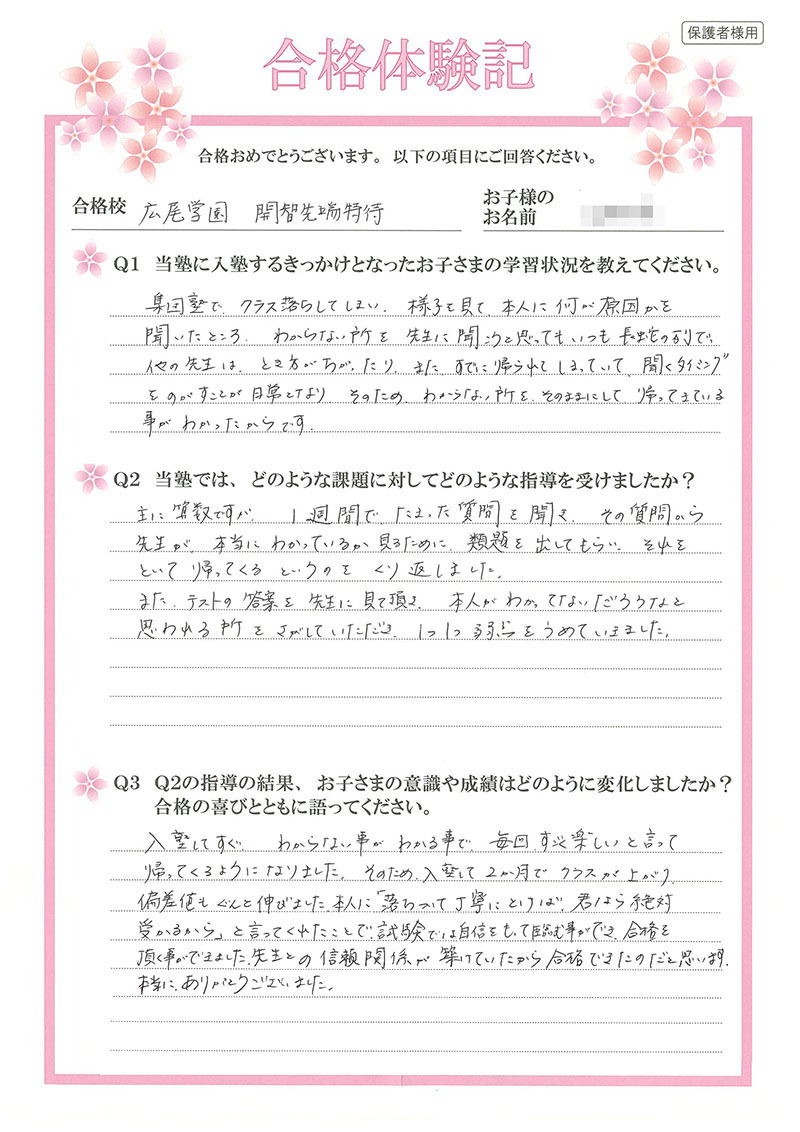 保護者様用
合格体験記
合格おめでとうございます。以下の項目にご回答ください。
合格校 広尾学園 開智先端特待
お子様の
お名前
Q1 当塾に入塾するきっかけとなったお子さまの学習状況を教えてください。
集団塾で、クラス落ちしてしまい、様子を見て、本人に何が原因かを
聞いたところ、わからない所を先生に聞こうと思ってもいつも長蛇の列で、
他の先生は、とき方がちがったり、また、すでに帰られてしまっていて、聞くタイミング
をのがすことが日常となり そのため、わからない所を、そのままにして 帰ってきている
事が わかったからです.
Q2 当塾では、どのような課題に対してどのような指導を受けましたか？
主に算数ですが、1週間で、たまった質問を聞き、その質問から
先生が、本当にわかっているか見るために、類題を出してもらい、それを
といて帰ってくるというのをくり返しました.
また、テストの答案を先生に見て頂き、本人がわかってないだろうなと
思われる所をさがしていただき、1つ1つ弱点をうめていきました.
Q3 Q2の指導の結果、お子さまの意識や成績はどのように変化しましたか？
合格の喜びとともに語ってください。
入塾してすぐ わからない事がわかる事で、毎回すごく楽しいと言って
帰ってくるようになりました. そのため、入塾して2か月でクラスが上がり
偏差値もぐんと伸びました.本人に「落ちついて丁寧にとけば、君なら絶対
受かるから」と言ってくれたことで、試験では自信をもって臨む事ができ、合格を
頂く事ができました.先生との信頼関係が築けていたから合格できたのだと思います.
本当に、ありがとうございました.